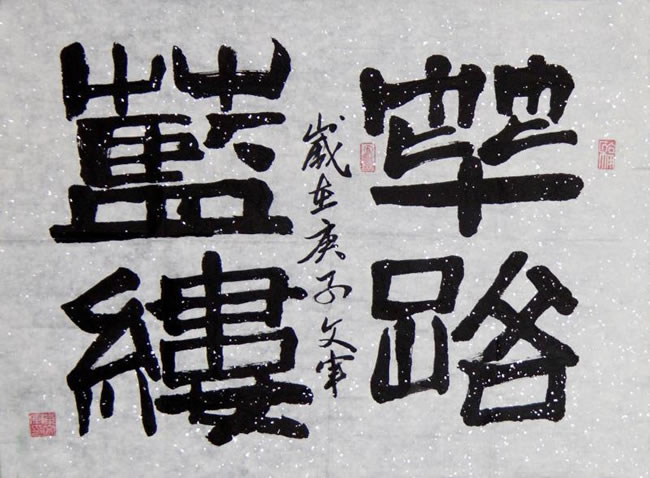 篳路
藍縷
歲在庚子文军